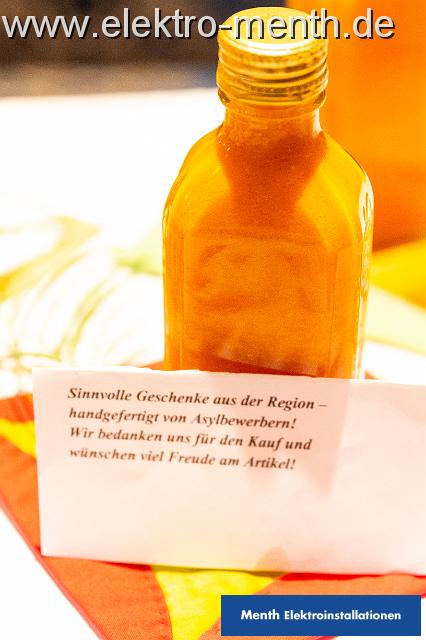 www.elektro-menth.de
Sinnvolle Geschenke aus der Region –
handgefertigt von Asylbewerbern!
Wir bedanken uns für den Kauf und
wünschen viel Freude am Artikel!
Menth Elektroinstallationen